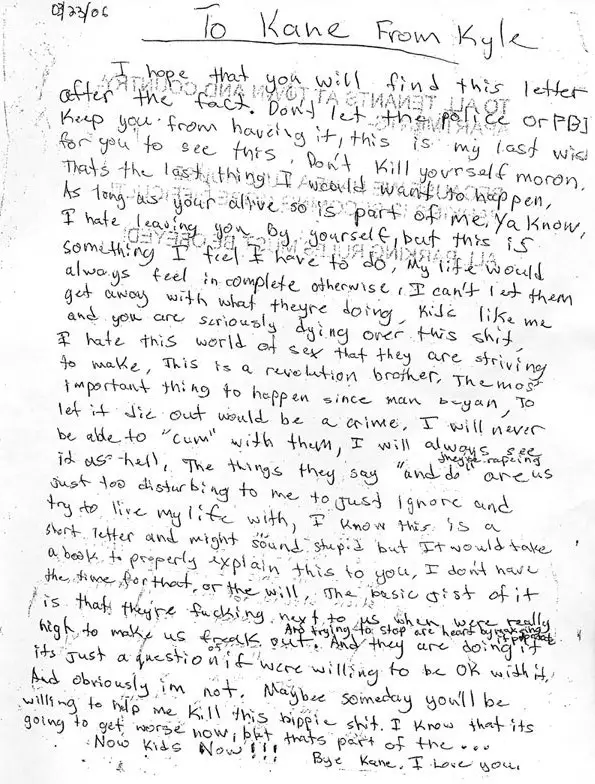 03/23/06
To Kane From Kyle
I hope that you will find this letter
after the fact. Don't let the police or FBI
Keep you from haveing it, this is my last wish
for you to see this. Don't Kill yourself moron,
Thats the last thing I would want to happen,
As long as your alive so is part of me, Ya Know,
I hate leaving you by yourself, but this is
something I feel I have to do, My life would
always feel in complete otherwise, I can't let them
get away with what theyre doing, Kids like me
and you are seriously dying over this shit,
I hate this world of sex that they are striving
to make, This is a revolution brother, The most
important thing to happen since man began, To
let it die out would be a crime, I will never
be able to "cum" with them, I will always see
it as hell, The things they say "and do" are us
theyre rapeing
just too disturbing to me to just ignore and
try to live my life with, I know this is a
short letter and might sound stupid but It would take
a book to properly explain this to you, I don't have
the time for that, or the will, The basic jist of it
is that theyre fucking next to us when were really
high to make us freak out. And they are doing it
And trying to stop are hearts by
its just a question of if were willing to be OK with it,
And obviously im not, Maybee someday you'll be
willing to help me Kill this hippie shit. I Know that its
going to get worse now, but thats part of the ...
Now Kids Now!!!
Bye Kane, I Love you,
TO ALL TENANTS AT TOWN AND COUNTRY
ALL PARKING RULES MUST BE OBEYED